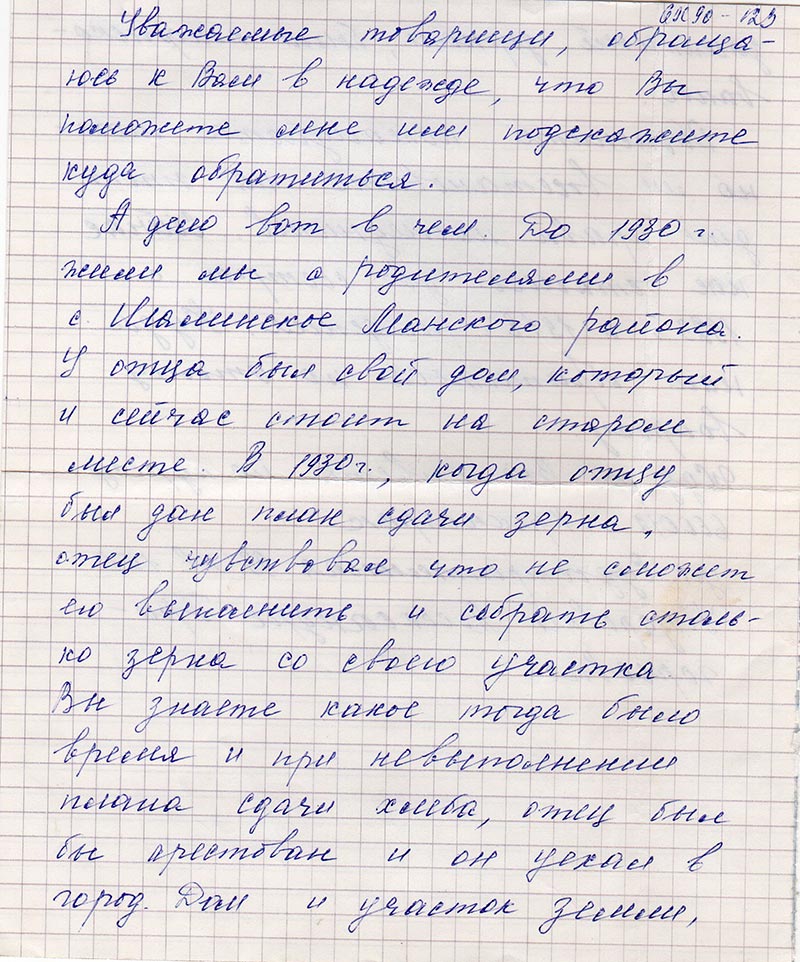 6Х90-123
Уважаемые товарищи, обраща-
юсь к Вам в надежде, что Вы
поможете мне или подскажите
куда обратиться.
А дело вот в чем. До 1930 г.
жили мы с родителями в
с. Шалинское Манского района.
У отца был свой дом, который
и сейчас стоит на старом
месте. В 1930 г., когда отцу
был дан план сдачи зерна,
отец чувствовал что не сможет
его выполнить и собрать столь-
ко зерна со своего участка
Вы знаете какое тогда было
время и при невыполнении
плана сдачи хлеба, отец был
бы арестован и он уехал в
город. Дом и участок земли,